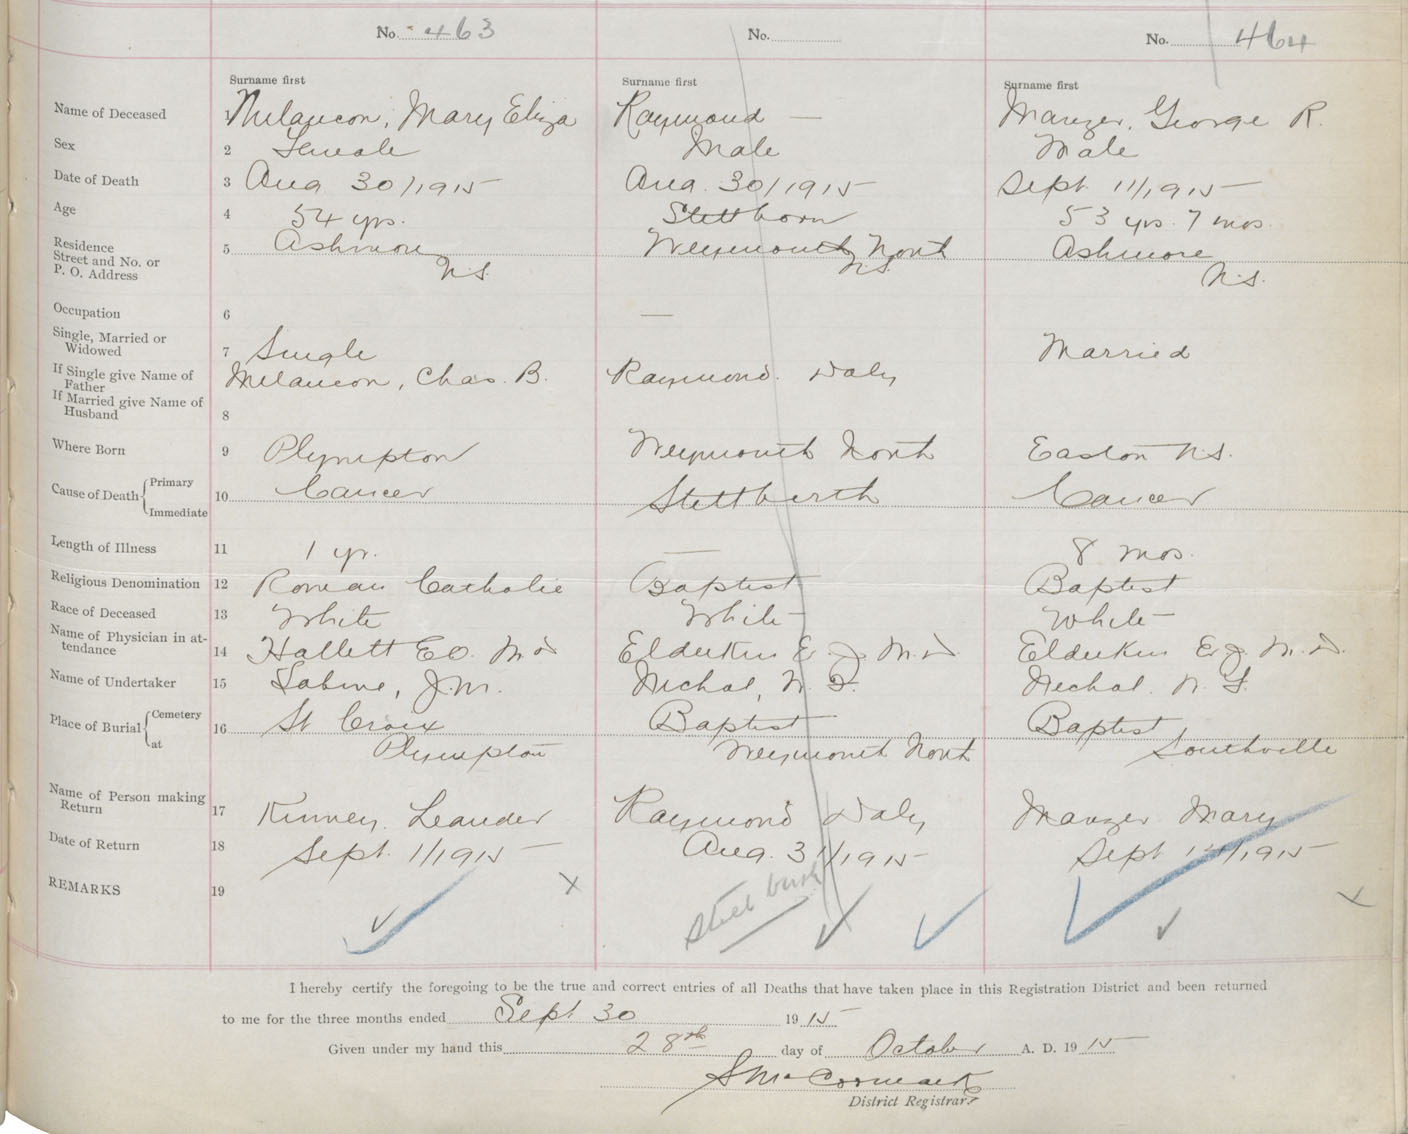 No. 463 No. No. 464
Surname first Surname first Surname first
Name of Deceased 1 Melancon, Mary Eliza Raymond — Manzer, George R.
Sex 2 Female Male Male
Date of Death 3 Aug 30/1915 Aug. 30/1915 Sept 11/1915
Age 4 54 yrs. Stillborn 53 yrs. 7 mos.
Residence
Street and No. or
P. O. Address 5 Ashmore Weymouth North Ashmore
N.S. N.S. N.S.
Occupation 6 —
Single, Married or
Widowed 7 Single Married
If Single give Name of
Father Melancon, Chas. B. Raymond. Daly
If Married give Name of
Husband 8
Where Born 9 Plympton Weymouth North Easton N.S.
Cause of Death Primary
Immediate 10 Cancer Stillbirth Cancer
Length of Illness 11 1 yr. — 8 mos.
Religious Denomination 12 Roman Catholic Baptist Baptist
Race of Deceased 13 White White White
Name of Physician in at-
tendance 14 Hallett E.O. M.D. Elderkin E. J. M.D. Elderkin E. J. M.D.
Name of Undertaker 15 Sabine, J.M. Nichol, N. F. Nichol. N. F.
Place of Burial Cemetery
at 16 St Croix Baptist Baptist
Plympton Weymouth North Southville
Name of Person making
Return 17 Kinney, Leander Raymond Daly Manzer Mary
Date of Return 18 Sept. 1/1915 Aug. 31/1915 Sept 14/1915
REMARKS 19 x Still birth x
I hereby certify the foregoing to be the true and correct entries of all Deaths that have taken place in this Registration District and been returned
to me for the three months ended Sept 30 1915
Given under my hand this 28th day of October A. D. 1915
S McCormack
District Registrar.